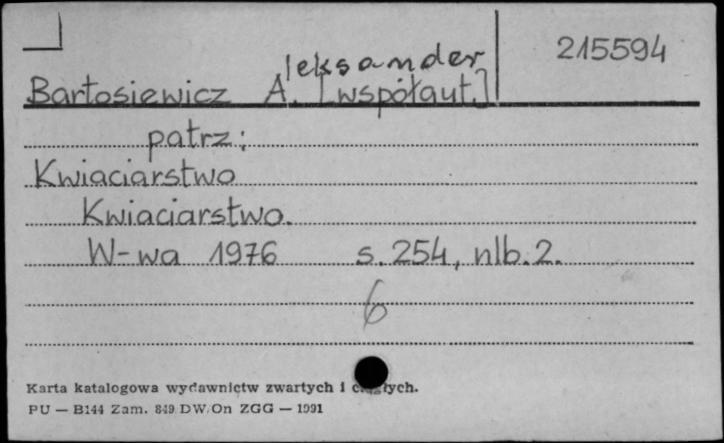 215594
leksander
Bartosiewicz A. [współaut.]
patrz:
Kwiaciarstwo
Kwiaciarstwo.
W-wa 1976 s. 254, nlb. 2.
6
Karta katalogowa wydawnictw zwartych i
PU — B144 Zam. 849 DW/On ZGG — 1991